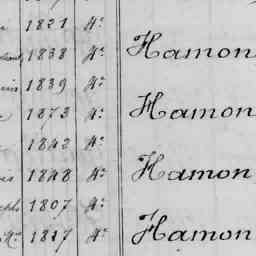 1821 4º
1838 4º Hamon
1839 4º
1873 4º Hamon
1842 4º
1848 4º Hamon
1807 4º
1817 4º Hamon